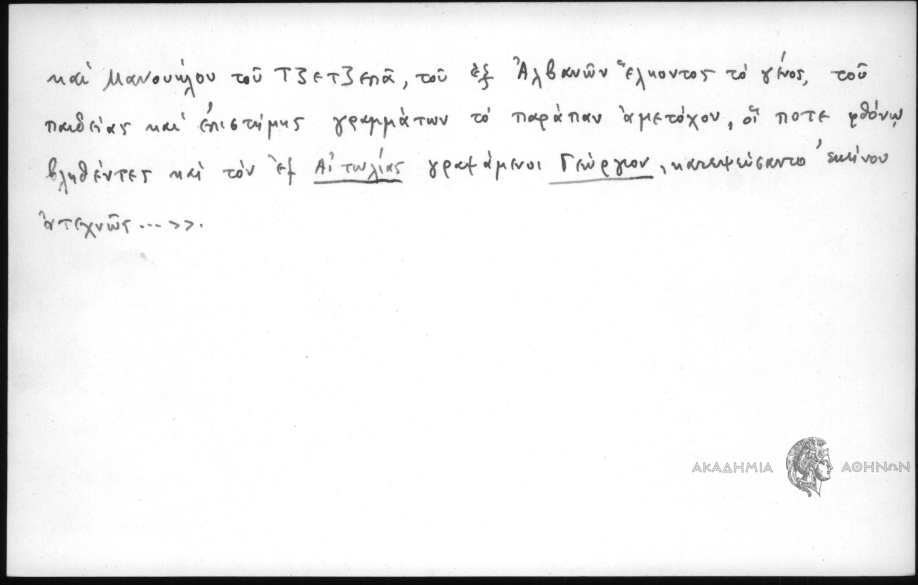 καὶ Μανουήλου τοῦ Τζετζεπᾶ, τοῦ ἐξ Ἀλβανῶν ἕλκοντος τὸ γένος, τοῦ
παιδείας καὶ ἐπιστήμης γραμμάτων τὸ παράπαν ἀμετόχου, οἵ ποτε φθόνῳ
βληθέντες καὶ τὸν ἐξ Αἰτωλίας γραψάμενοι Γεώργιον, κατεψεύσαντο ἐκείνου
ἀτεχνῶς...>>.
ΑΚΑΔΗΜΙΑ ΑΘΗΝΩΝ